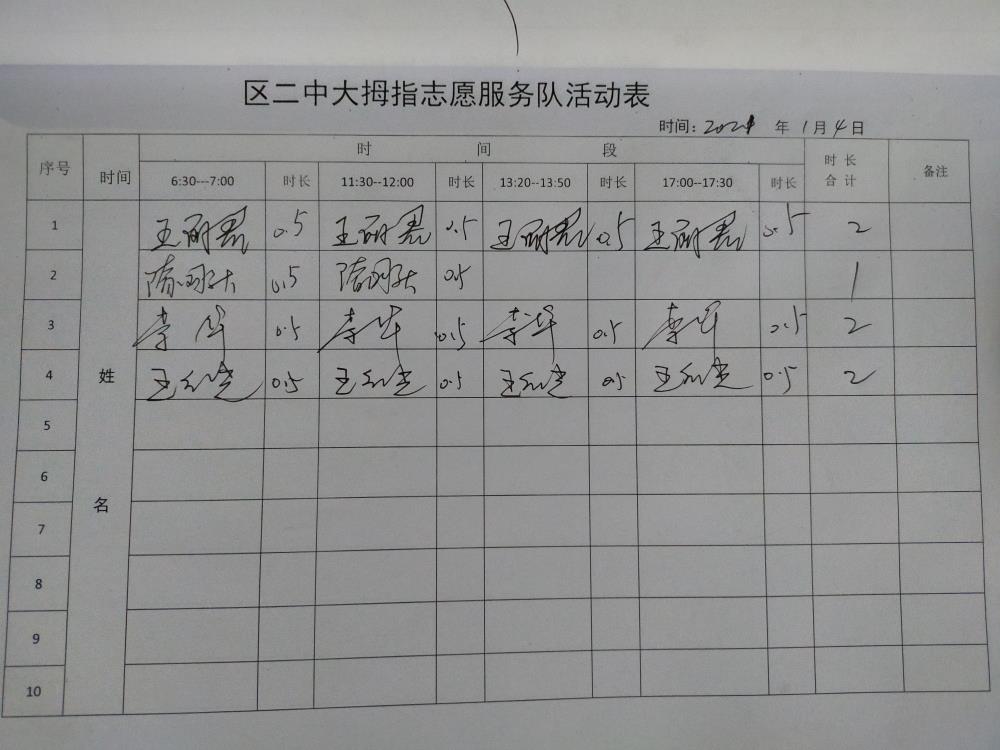 区二中大拇指志愿服务队活动表
时间：2021 年 1 月 4 日
序号 时间 时 间 段 时长合计 备注
6:30---7:00 时长 11:30--12:00 时长 13:20--13:50 时长 17:00--17:30 时长
姓名
1 王丽君 0.5 王丽君 0.5 王丽君 0.5 王丽君 0.5 2
2 0.5 0.5 1
3 李华 0.5 李华 0.5 李华 0.5 李华 0.5 2
4 王 0.5 王 0.5 王 0.5 王 0.5 2
5
6
7
8
9
10